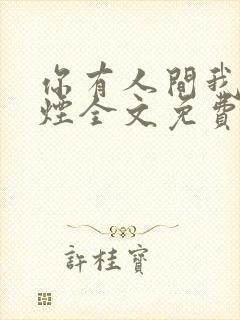 你有人間我
煙全文免費
許桂寶